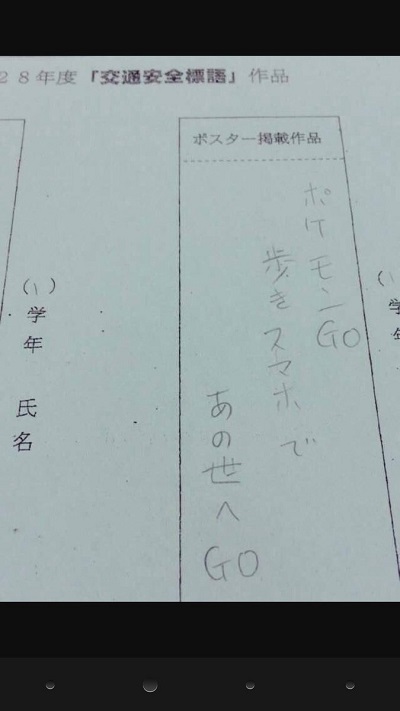 28年度『交通安全標語』作品
ポスター掲載作品
ポケモンGO
歩きスマホで
あの世へGO
(1)
学年
氏名
(1)
学年